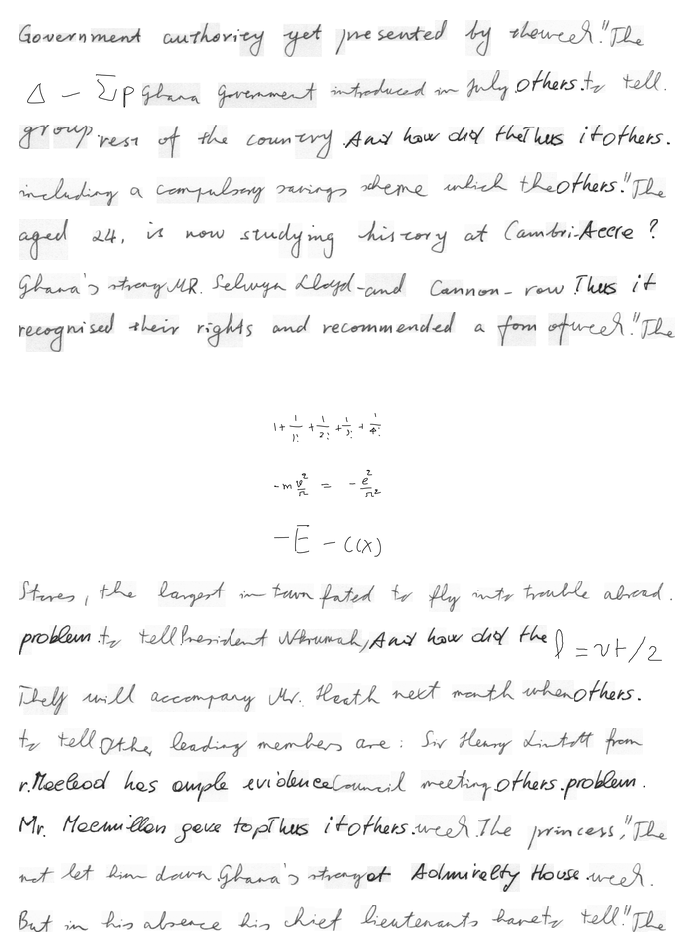 Government authority yet presented by the week." The
Δ - Σp Ghana Government introduced in July others. to tell.
group, rest of the country. And how did the Thus it others.
including a compulsory savings scheme which the others." The
aged 24, is now studying history at Cambri- Accra ?
Ghana's strong MR. Selwyn Lloyd- and Cannon- row Thus it
recognised their rights and recommended a fom of week." The
1 + 1/1! + 1/2! + 1/3! + 1/4!
-m v²/r = - e²/r²
-E - C(X)
Stores, the largest in town fated to fly into trouble abroad.
problem. to tell President Nkrumah, And how did the l = vt/2
They will accompany Mr. Heath next month when others.
to tell Othe, leading members are : Sir Henry Lintott from
r. Macleod has ample evidence Council meeting others. problem.
Mr. Macmillan gave top Thus it others. week. The princess, "The
not let him down. Ghana's strong at Admiralty House. week.
But in his absence his chief lieutenants have to tell." The